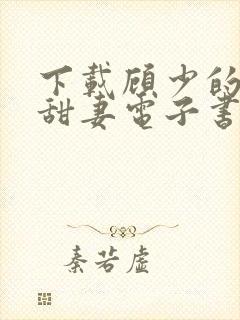 下載顾少的
甜妻電子書
秦若虛